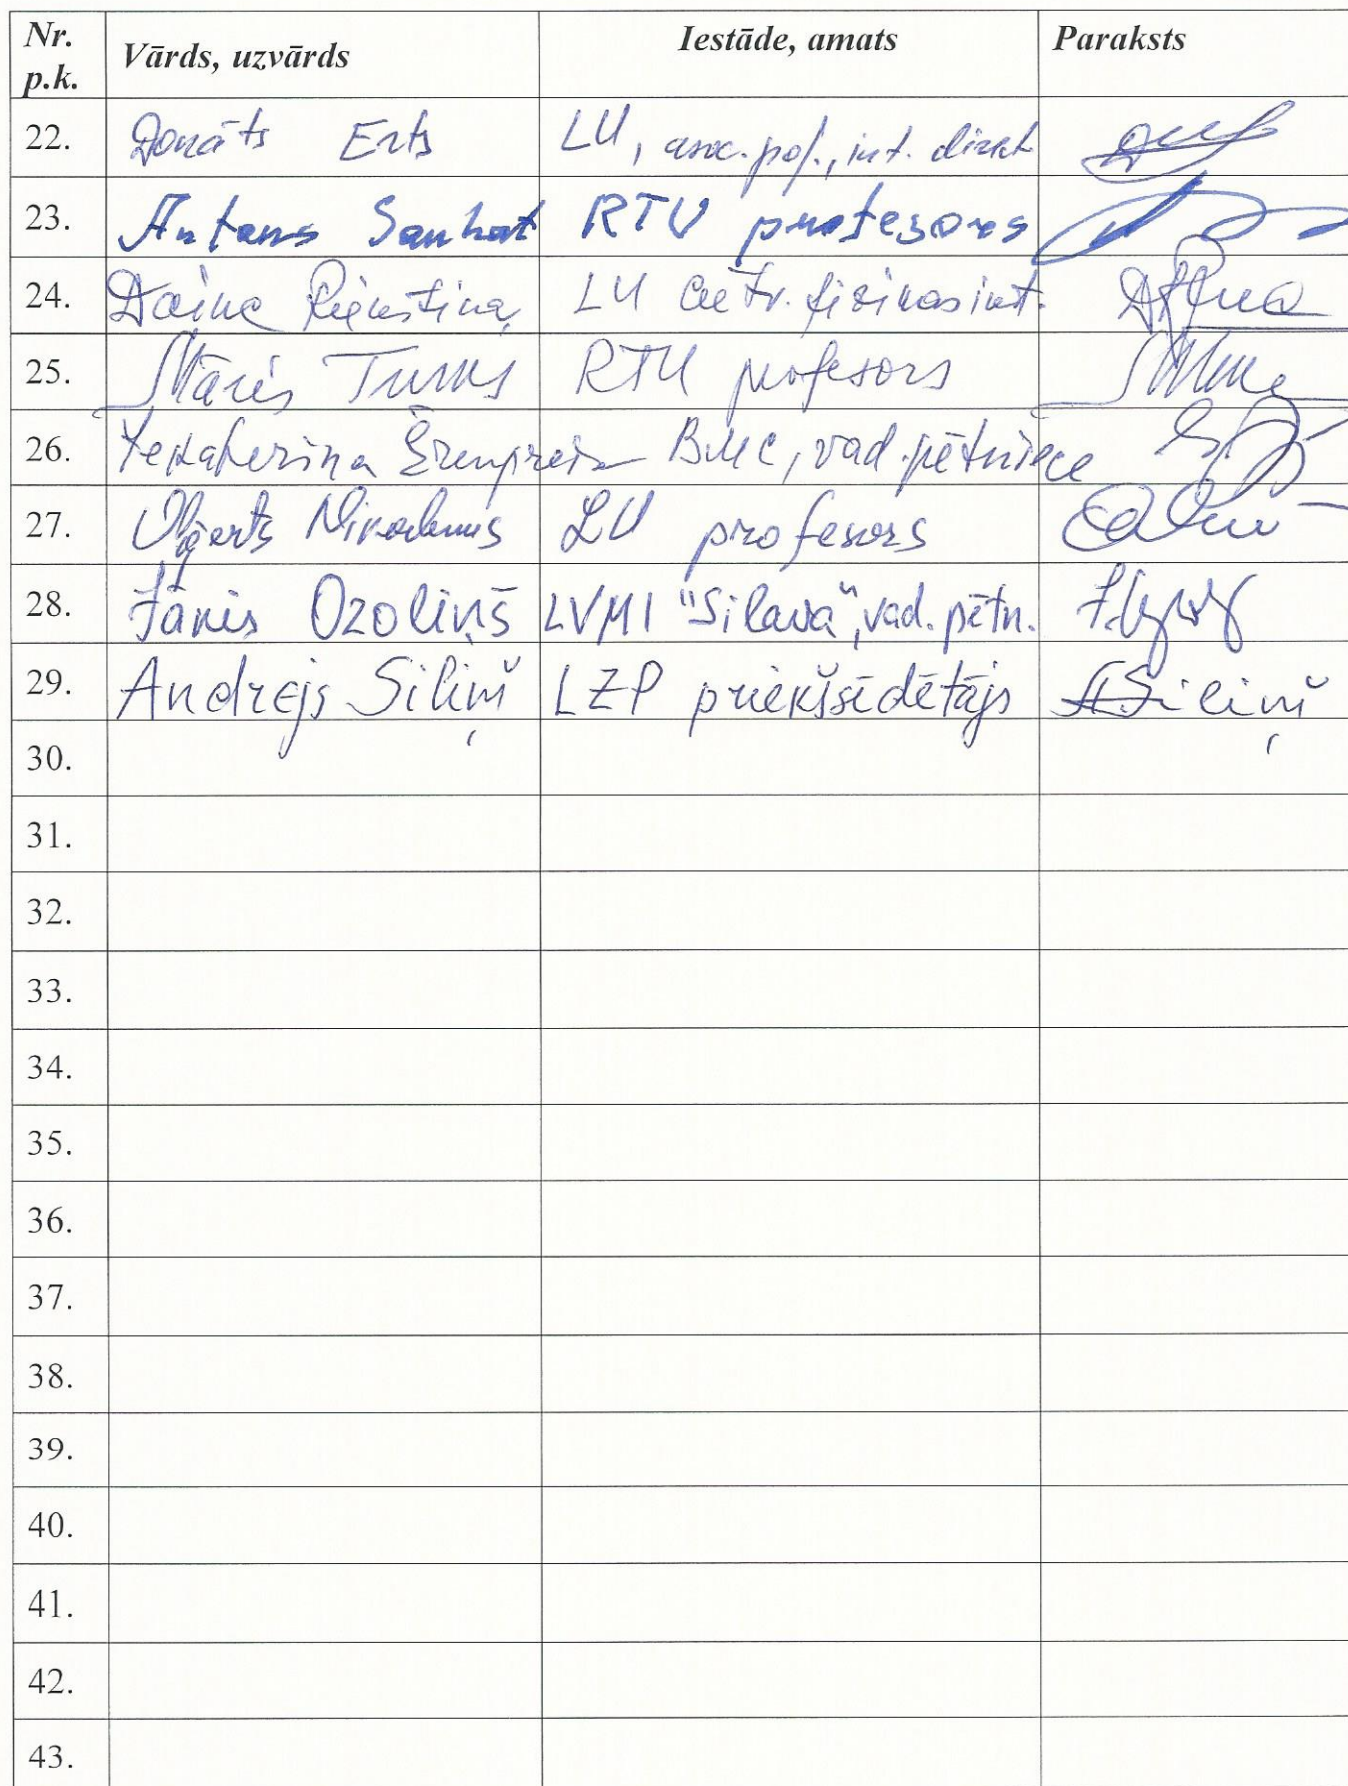 Nr. p.k. Vārds, uzvārds Iestāde, amats Paraksts
22. Donāts Erts LU, asoc. prof., inst. direkt
23. Antans Sauhat RTU profesors
24. Daina Riekstiņa LU Cietv. fizikas inst.
25. Māris Turks RTU profesors
26. Jekaterina Ērenpreisa BMC, vad. pētniece
27. Oļģerts Nikodemus LU profesors
28. Jānis Ozoliņš LVMI "Silava", vad. pētn.
29. Andrejs Siliņš LZP priekšsēdētājs ASiliņš
30.
31.
32.
33.
34.
35.
36.
37.
38.
39.
40.
41.
42.
43.